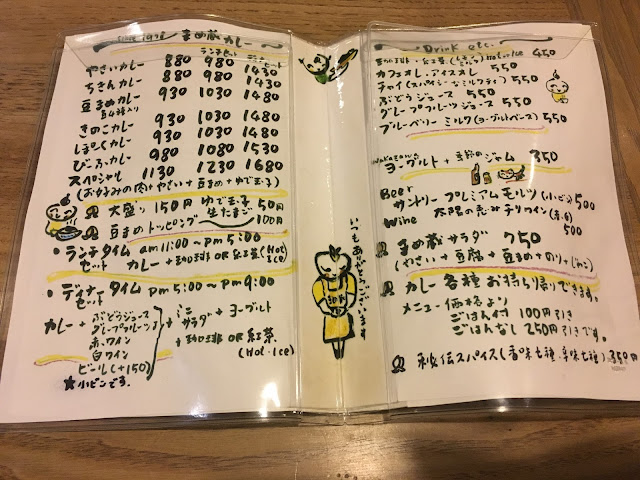 since 1978 まめ蔵カレー
ランチセット ディナーセット
やさいカレー 880 980 1430
ちきんカレー 880 980 1430
豆まめカレー 930 1030 1480
豆4種入り
きのこカレー 930 1030 1480
ぽーくカレー 930 1030 1480
びーふカレー 980 1080 1530
スペシャル 1130 1230 1680
(お好みの肉+やさい+豆まめ+ゆで玉子)
大盛り 150円 ゆで玉子 50円
生たまご
豆まめトッピング 100円
・ランチタイム am11:00〜pm5:00
セット カレー+珈琲 OR 紅茶 (Hot Ice)
・ディナータイム pm5:00〜pm9:00
セット
カレー + ぶどうジュース
グレープフルーツジュース
赤ワイン
白ワイン
ビール(+150)
+ ミニサラダ + ヨーグルト
+ 珈琲 OR 紅茶
(Hot・Ice)
★小ビンです。
いつもありがとうございます
Drink etc.
珈琲・紅茶 Hot or Ice 450
カフェオレ・アイスオレ 550
チャイ(スパイシーなミルクティ) 550
ぶどうジュース 550
グレープフルーツジュース 550
ブルーベリーミルク(ヨーグルトベース) 550
ヨーグルト+季節のジャム 350
Beer
サントリー プレミアムモルツ(小ビン) 500
Wine 太陽の恵みチリワイン(赤・白) 500
まめ蔵サラダ 750
(やさい+豆腐+豆まめ+のり+じゃこ)
カレー各種お持ち帰りできます。
メニュー価格より
ごはん付 100円引き
ごはんなし 250円引きです。
秘伝スパイス(香味七種・辛味七種) 350円